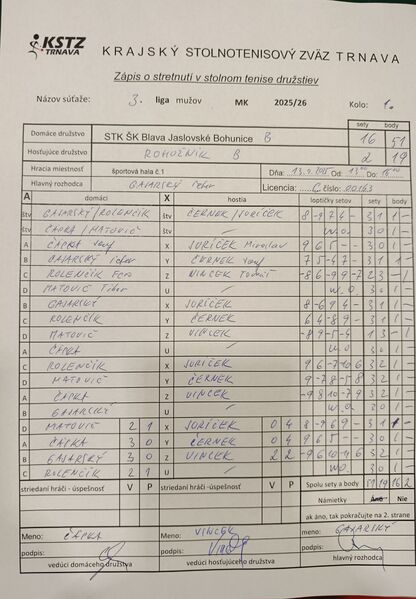 KSTZ
TRNAVA
KRAJSKÝ STOLNOTENISOVÝ ZVÄZ TRNAVA
Zápis o stretnutí v stolnom tenise družstiev
Názov súťaže: 3. liga mužov MK 2025/26 Kolo: 1.
sety body
Domáce družstvo STK ŠK Blava Jaslovské Bohunice B 16 51
Hosťujúce družstvo ROHOŽNÍK B 2 19
Hracia miestnosť športová hala č.1 Dňa: Od: Do:
Hlavný rozhodca GAJARSKÝ Peter Licencia: C číslo: 00163
A domáci X hostia loptičky setov sety body
štv GAJARSKÝ/ROLENČÍK štv ČERNEK/JURÍČEK 8 -9 7 4 - 3 1 1 -
štv ČAPKA/MATOVIČ štv / w.o. 3 0 1 -
A ČAPKA X JURÍČEK Miroslav 9 6 5 - - 3 0 1 -
B GAJARSKÝ Peter Y ČERNEK 7 5 -4 7 - 3 1 1 -
C ROLENČÍK Z VINCEK Tomáš -8 6 -9 9 -7 2 3 - 1
D MATOVIČ Tibor U / w.o 3 0 1 -
B GAJARSKÝ X JURÍČEK 8 -6 9 4 - 3 1 1 -
C ROLENČÍK Y ČERNEK 6 4 -8 9 - 3 1 1 -
D MATOVIČ Z VINCEK -8 9 -5 -4 1 3 - 1
A ČAPKA U / w.o 3 0 1 -
C ROLENČÍK X JURÍČEK 9 6 -7 -10 6 3 2 1 -
D MATOVIČ Y ČERNEK 9 -7 8 -5 8 3 2 1 -
A ČAPKA Z VINCEK -9 8 10 -7 9 3 2 1 -
B GAJARSKÝ U / w.o. 3 0 1 -
D MATOVIČ 2 1 X JURÍČEK 0 4 8 -9 6 9 - 3 1 1 -
A ČAPKA 3 0 Y ČERNEK 0 4 9 6 5 - - 3 0 1 -
B GAJARSKÝ 3 0 Z VINCEK 2 2 -9 6 10 -4 6 3 2 1 -
C ROLENČÍK 2 1 U / w.o. 3 0 1 -
striedaní hráči - úspešnosť V P striedaní hráči - úspešnosť V P Spolu sety a body 51 19 16 2
Námietky Áno - Nie
ak áno, tak pokračujte na 2. strane
Meno: ČAPKA Meno: VINCEK meno: GAJARSKÝ
podpis: podpis: podpis:
vedúci domáceho družstva vedúci hosťujúceho družstva hlavný rozhodca